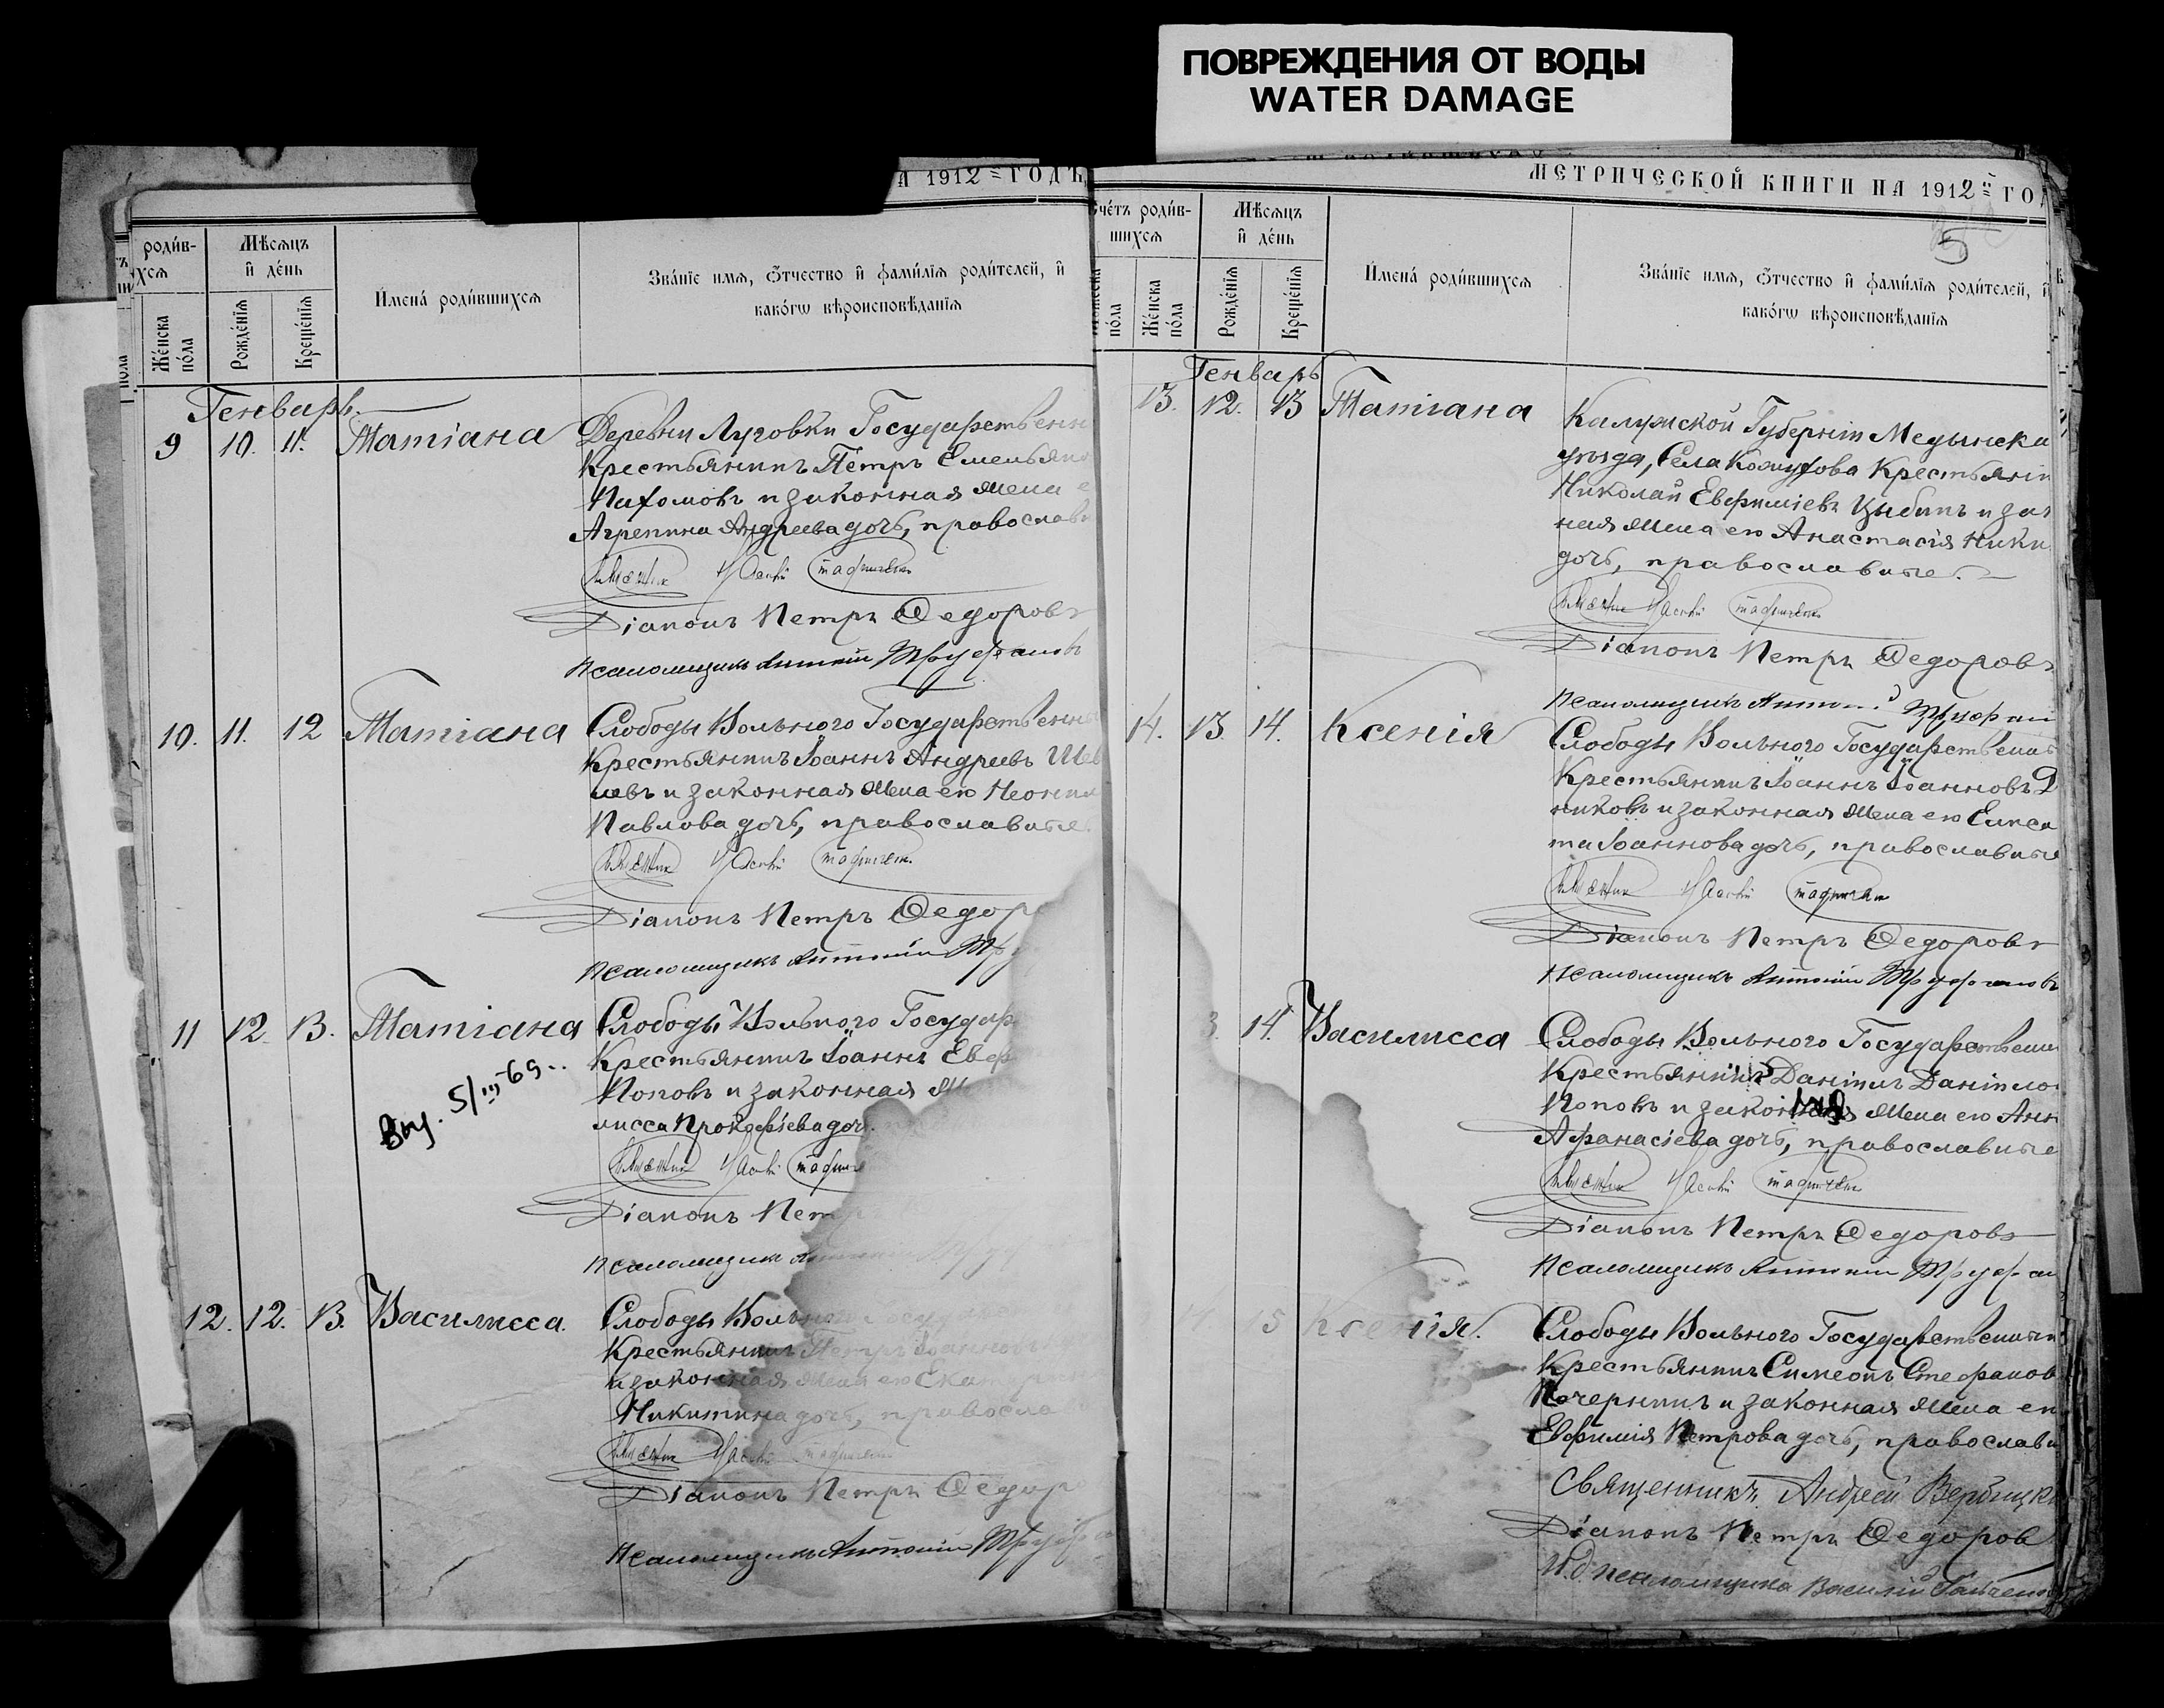 ПОВРЕЖДЕНИЯ ОТ ВОДЫ
WATER DAMAGE
А 1912 = ГОДЪ
роди́в-
хсѧ
Мѣсѧцъ
и҆ де́нь
Же́нска по́ла
Рожде́нїѧ
Креще́нїѧ
И҆мена́ роди́вшихсѧ
Зва́нїе имѧ, ѻ҆́тчество и҆ фами́лїѧ роди́телей, и҆
како́гѡ вѣроисповѣ́данїѧ
Генварь.
9 10. 11. Татiана
Деревни Луговки Государственн
Крестьянинъ Петръ Емельяно
Пахомовъ и законная жена е
Агрепина Андреева дочь, православн
Дiаконъ Петръ Ѳедоровъ
Псаломщикъ Антонiй Труфановъ
10. 11. 12 Татiана
Слободы Вольного Государственн
Крестьянинъ Iоаннъ Андреевъ Шев
левъ и законная жена его Неонил
Павлова дочь, православные
Дiаконъ Петръ Ѳедор
Псаломщикъ Антонiй Тру
11 12. 13. Татiана
Слободы Вольного Государ
Крестьянинъ Iоаннъ Евф
Поповъ и законная же
лисса Прокофiева доч
5/III-69
Дiаконъ Петр
Псаломщикъ
12. 12. 13. Василисса.
Слободы Вольного Госуд
Крестьянинъ Петръ Iоанновъ
и законная жена его Екатерин
Никитина дочь, правосла
Дiаконъ Петръ Ѳедор
Псаломщикъ Антонiй Труфа
МЕТРИЧЕСКОЙ КНИГИ НА 1912 = ГО
5
Сче́тъ роди́в-
шихсѧ
Мѣсѧцъ
и҆ де́нь
по́ла
Же́нска по́ла
Рожде́нїѧ
Креще́нїѧ
И҆мена́ роди́вшихсѧ
Зва́нїе имѧ, ѻ҆́тчество и҆ фами́лїѧ роди́телей, и҆
како́гѡ вѣроисповѣ́данїѧ
Генварь
13. 12. 13 Татiана
Калужской Губернiи Медынска
уѣзда, Села Кожухова Крестьянин
Николай Евфимiевъ Цыбинъ и зак
ная жена его Анастасiя Ники
дочь, православные.
Дiаконъ Петръ Ѳедоровъ
Псаломщикъ Антонiй
14. 13. 14. Ксенiя
Слободы Вольного Государственн
Крестьянинъ Iоаннъ Iоанновъ Д
никовъ и законная жена его Елиса
та Iоаннова дочь, православные
Дiаконъ Петръ Ѳедоровъ
Псаломщикъ Антонiй Труфановъ
3. 14. Василисса
Слободы Вольного Государственн
Крестьянинъ Данiилъ Данiилов
Поповъ и законная жена его Анн
Афанасiева дочь, православные
Дiаконъ Петръ Ѳедоровъ
Псаломщикъ Антонiй Труфан
15 Ксенiя.
Слободы Вольного Государственный
Крестьянинъ Симеонъ Стефанов
Печернинъ и законная жена ег
Евфимiя Петрова дочь, православн
Священникъ Андрей Вербицк
Дiаконъ Петръ Ѳедоров
И.д. псаломщика Василiй